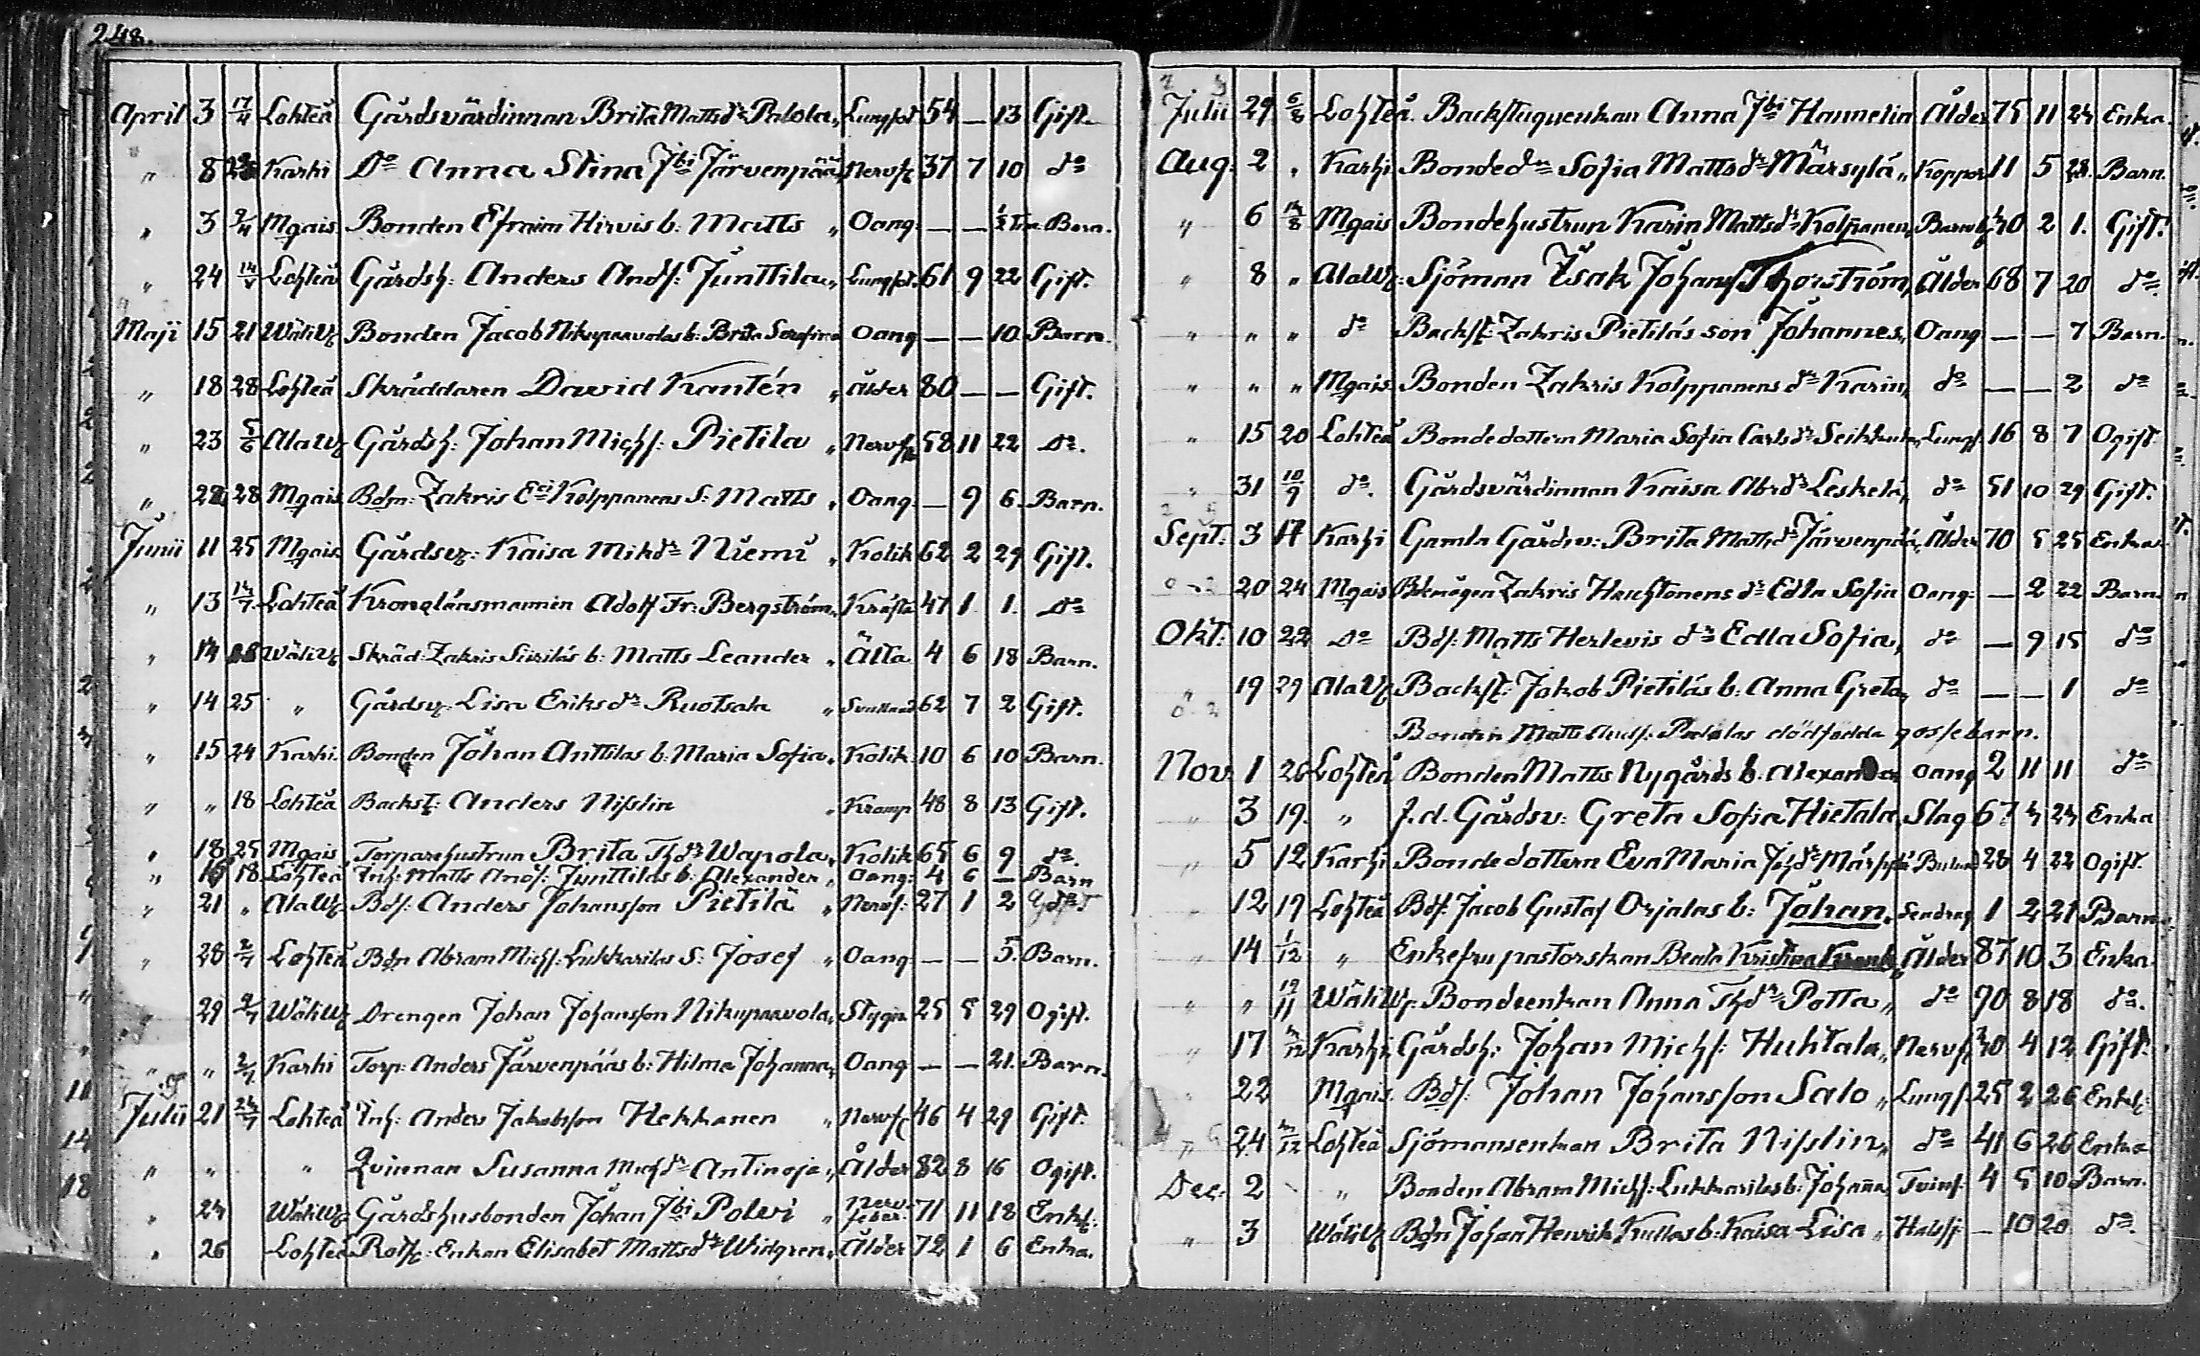 248.
April 3 17/4 Lohteå Gårdsvärdinnan Brita Mattsdr Palola „ Lungsot 54 — 13 Gift.
„ 8 Karhi Do Anna Stina Jbi Järvenpää „ Nervf 37 7 10 do
„ 3 2/4 Mgais Bonden Efraim Hirvis b: Matts „ Oang. — — Barn.
„ 24 14/5 Lohteå Gårdsh: Anders Andss: Junttila „ Lungsot. 61 9 22 Gift.
Maji 15 21 WäliW Bonden Jacob Nikupaavolas b: Brita Serafina Oang — — 10 Barn.
„ 18 28 Lohteå Skräddaren David Kantén „ Ålder 80 — — Gift.
„ 23 5/6 AlaW Gårdsh: Johan Michss: Pietilä „ Nervf 58 11 22 Do.
„ 28 Mgais Bdn: Zakris Eri Kolppanens S: Matts „ Oang. — 9 6. Barn.
Junii 11 25 Mgais Gårdsv: Kaisa Mikdr Niemi „ Kolik 62 2 29 Gift.
„ 13 14/7 Lohteå Kronolänsmannen Adolf Fr: Bergström „ Kräfta 47 1 1. Do
„ 14 WäliW Skräd: Zakris Siirilás b: Matts Leander „ Älta 4 6 18 Barn.
„ 14 25 „ Gårdsv: Lisa Eriksdr Ruotsala „ 62 7 2 Gift.
„ 15 24 Karhi Bonden Johan Anttilas b: Maria Sofia „ Kolik 10 6 10 Barn.
„ „ 18 Lohteå Backst: Anders Nisslin „ Kramp 48 8 13 Gift.
„ 18 25 Mgais Torparehustrun Brita Thdr Wapola „ Kolik 65 6 9 do.
„ 16 18 Lohteå Inh: Matts Andss: Junttilas b: Alexander „ Oang: 4 6 — Barn
„ 21 „ AlaW Bds: Anders Johansson Pietilä „ Nervf: 27 1 2
„ 28 2/7 Lohteå Bdn Abram Michss: Lukkarilas S: Josef „ Oang — — 5. Barn.
„ 29 2/7 WäliW Drengen Johan Johansson Nikupaavola „ 25 5 29 Ogift.
„ „ 2/7 Karhi Torp: Anders Järvenpääs b: Hilma Johanna „ Oang — — 21. Barn.
Julii 21 24/7 Lohteå Inh: Anders Jakobsson Hekkanen „ Nervf 46 4 29 Gift.
„ „ „ Qvinnan Susanna Michdr Antinoja „ Ålder 82 8 16 Ogift.
„ 24 WäliW Gårdshusbonden Johan Jbi Polvi „ Nervfeber: 71 11 18 Enkl:
„ 26 Lohteå Enkan Elisabet Mattsdr Widgren „ Ålder 72 1 6 Enka.
Julii 29 6/8 Lohteå. Backstuguenkan Anna Jbi Hannelin Ålder 75 11 24 Enka.
Aug. 2 „ Karhi Bonded. Sofia Mattsdr Märsylä „ Koppor 11 5 28. Barn.
„ 6 14/8 Mgais Bondehustrun Karin Mattsdr Kolppanen „ Barnb 40 2 1. Gift.
„ 8 „ AlaW: Sjöman Isak Johanss Thorström „ Ålder 68 7 20 do.
„ „ „ do Backst: Zakris Pietilás son Johannes „ Oang — — 7 Barn.
„ „ „ Mgais. Bonden Zakris Kolppanens dr Karin „ do — — 2 do
„ 15 20 Lohteå Bondedottern Maria Sofia Carlsdr „ Lungs. 16 8 7 Ogift.
„ 31 10/9 do. Gårdsvärdinnan Kaisa Abrdr Leskelä „ do 51 10 29 Gift.
Sept: 3 17 Karhi Gamla Gårdsv: Brita Mattsdr Järvenpää „ Ålder 70 5 25 Enka.
20 24 Mgais Zakris dr Edla Sofia Oang: — 2 22 Barn.
Okt: 10 22 Do Bds: Matts Herlevis dr Edla Sofia „ do — 9 15 do
„ 19 29 AlaW Backst: Jakob Pietilás b: Anna Greta „ do — — 1 do
Bonden Matts Andss: Palolas dödfödda gossebarn.
Nov 1 26 Lohteå Bonden Matts Nygårds b: Alexander Oang 2 11 11 do
„ 3 19. „ f.d. Gårdsv: Greta Sofia Hietala „ Slag 67 4 24 Enka
„ 5 12 Karhi Bondedottern Eva Maria Johdr Märsylä 28 4 22 Ogift.
„ 12 19 Lohteå Bds: Jacob Gustaf Orjalas b: Johan „ 1 2 21 Barn
„ 14 1/12 „ Enkefru pastorskan Beata Kristina „ Ålder 87 10 3 Enka.
„ „ 19/11 WäliW: Bondeenkan Anna Thdr Potta „ do 70 8 18 do.
„ 17 4/12 Karhi Gårdsh: Johan Michss: Huhtala „ Nervf 40 4 12 Gift.
„ 22 Mgais. Bds: Johan Johansson Salo „ Lungs. 25 2 26 Enkl:
„ 24 4/12 Lohteå Sjömansenkan Brita Nisslin „ do 41 6 26 Enka
Dec: 2 „ Bonden Abram Michss: Lukkarilas b: Johanna Tvins: 4 5 10 Barn.
„ 3 WäliW Bdn Johan Henrik Kullas b: Kaisa Lisa „ Halssj — 10 20 do.